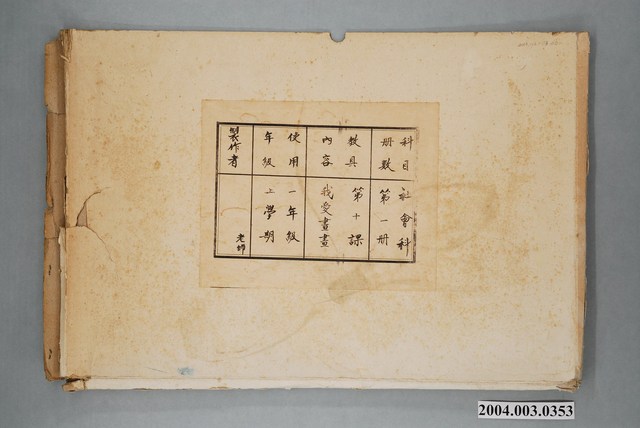 科目 社會科
冊數 第一冊
教具 第十課
內容 我愛畫畫
使用 一年級
年級 上學期
製作者 老師
2004.003.0353